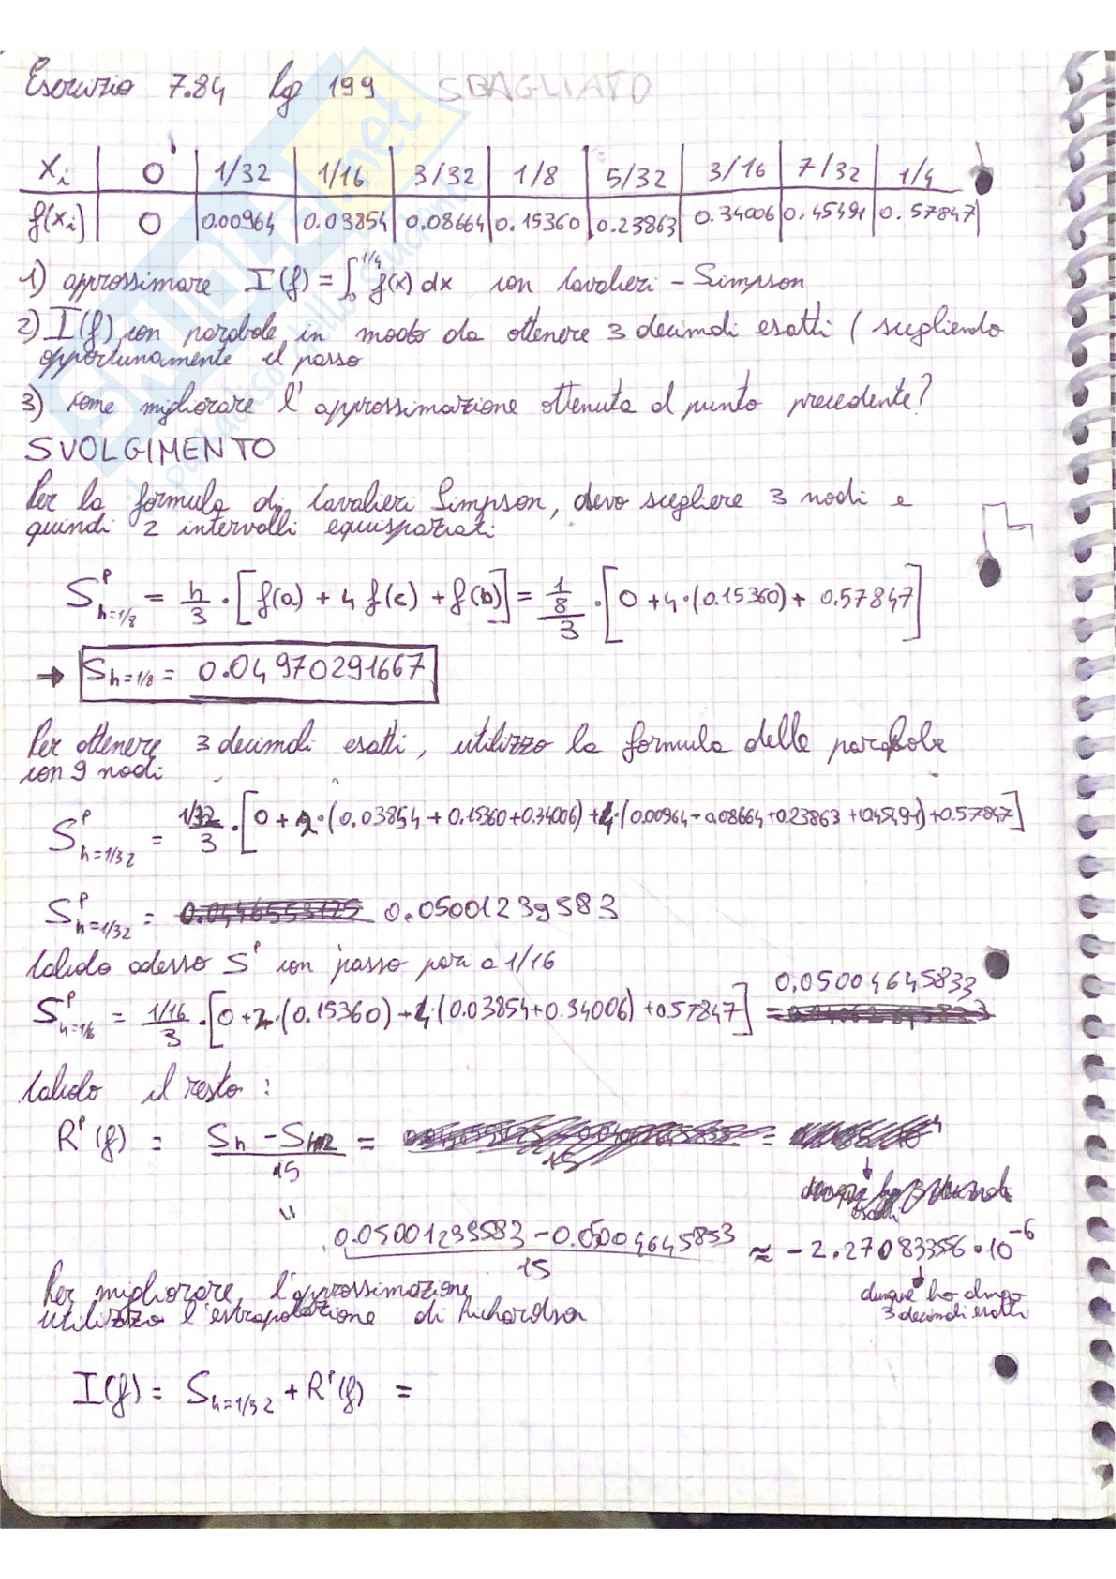 Esercizio 7.84 pg 199 SBAGLIATO
Xi | 0 | 1/32 | 1/16 | 3/32 | 1/8 | 5/32 | 3/16 | 7/32 | 1/4
f(xi) | 0 | 0.00964 | 0.03854 | 0.08664 | 0.15360 | 0.23863 | 0.34006 | 0.45491 | 0.57847
1) approssimare I(f) = ∫₀^{1/4} f(x) dx con Cavalieri - Simpson
2) I(f) con parabole in modo da ottenere 3 decimali esatti (scegliendo
opportunamente il passo
3) come migliorare l'approssimazione ottenuta al punto precedente?
SVOLGIMENTO
Per la formula di Cavalieri Simpson, devo scegliere 3 nodi e
quindi 2 intervalli equispaziati
S^P_{h=1/8} = h/3 · [f(a) + 4 f(c) + f(b)] = (1/8)/3 · [0 + 4·(0.15360) + 0.57847]
→ S_{h=1/8} = 0.04970291667
Per ottenere 3 decimali esatti, utilizzo la formula delle parabole
con 9 nodi
S^P_{h=1/32} = (1/32)/3 · [0 + 2·(0.03854 + 0.15360 + 0.34006) + 4·(0.00964 + 0.08664 + 0.23863 + 0.45491) + 0.57847]
S^P_{h=1/32} = 0.05001239583
Calcolo adesso S^P con passo pari a 1/16
S^P_{h=1/16} = (1/16)/3 · [0 + 2·(0.15360) + 4·(0.03854 + 0.34006) + 0.57847] = 0,05004645833
Calcolo il resto:
R^P(f) = =
15
0.05001239583 - 0.05004645833 / 15 ≈ -2.27083356·10^{-6}
dunque ho almeno
3 decimali esatti
Per migliorare l'approssimazione
utilizzo l'estrapolazione di Richardson
I(f) = S_{h=1/32} + R^P(f) =